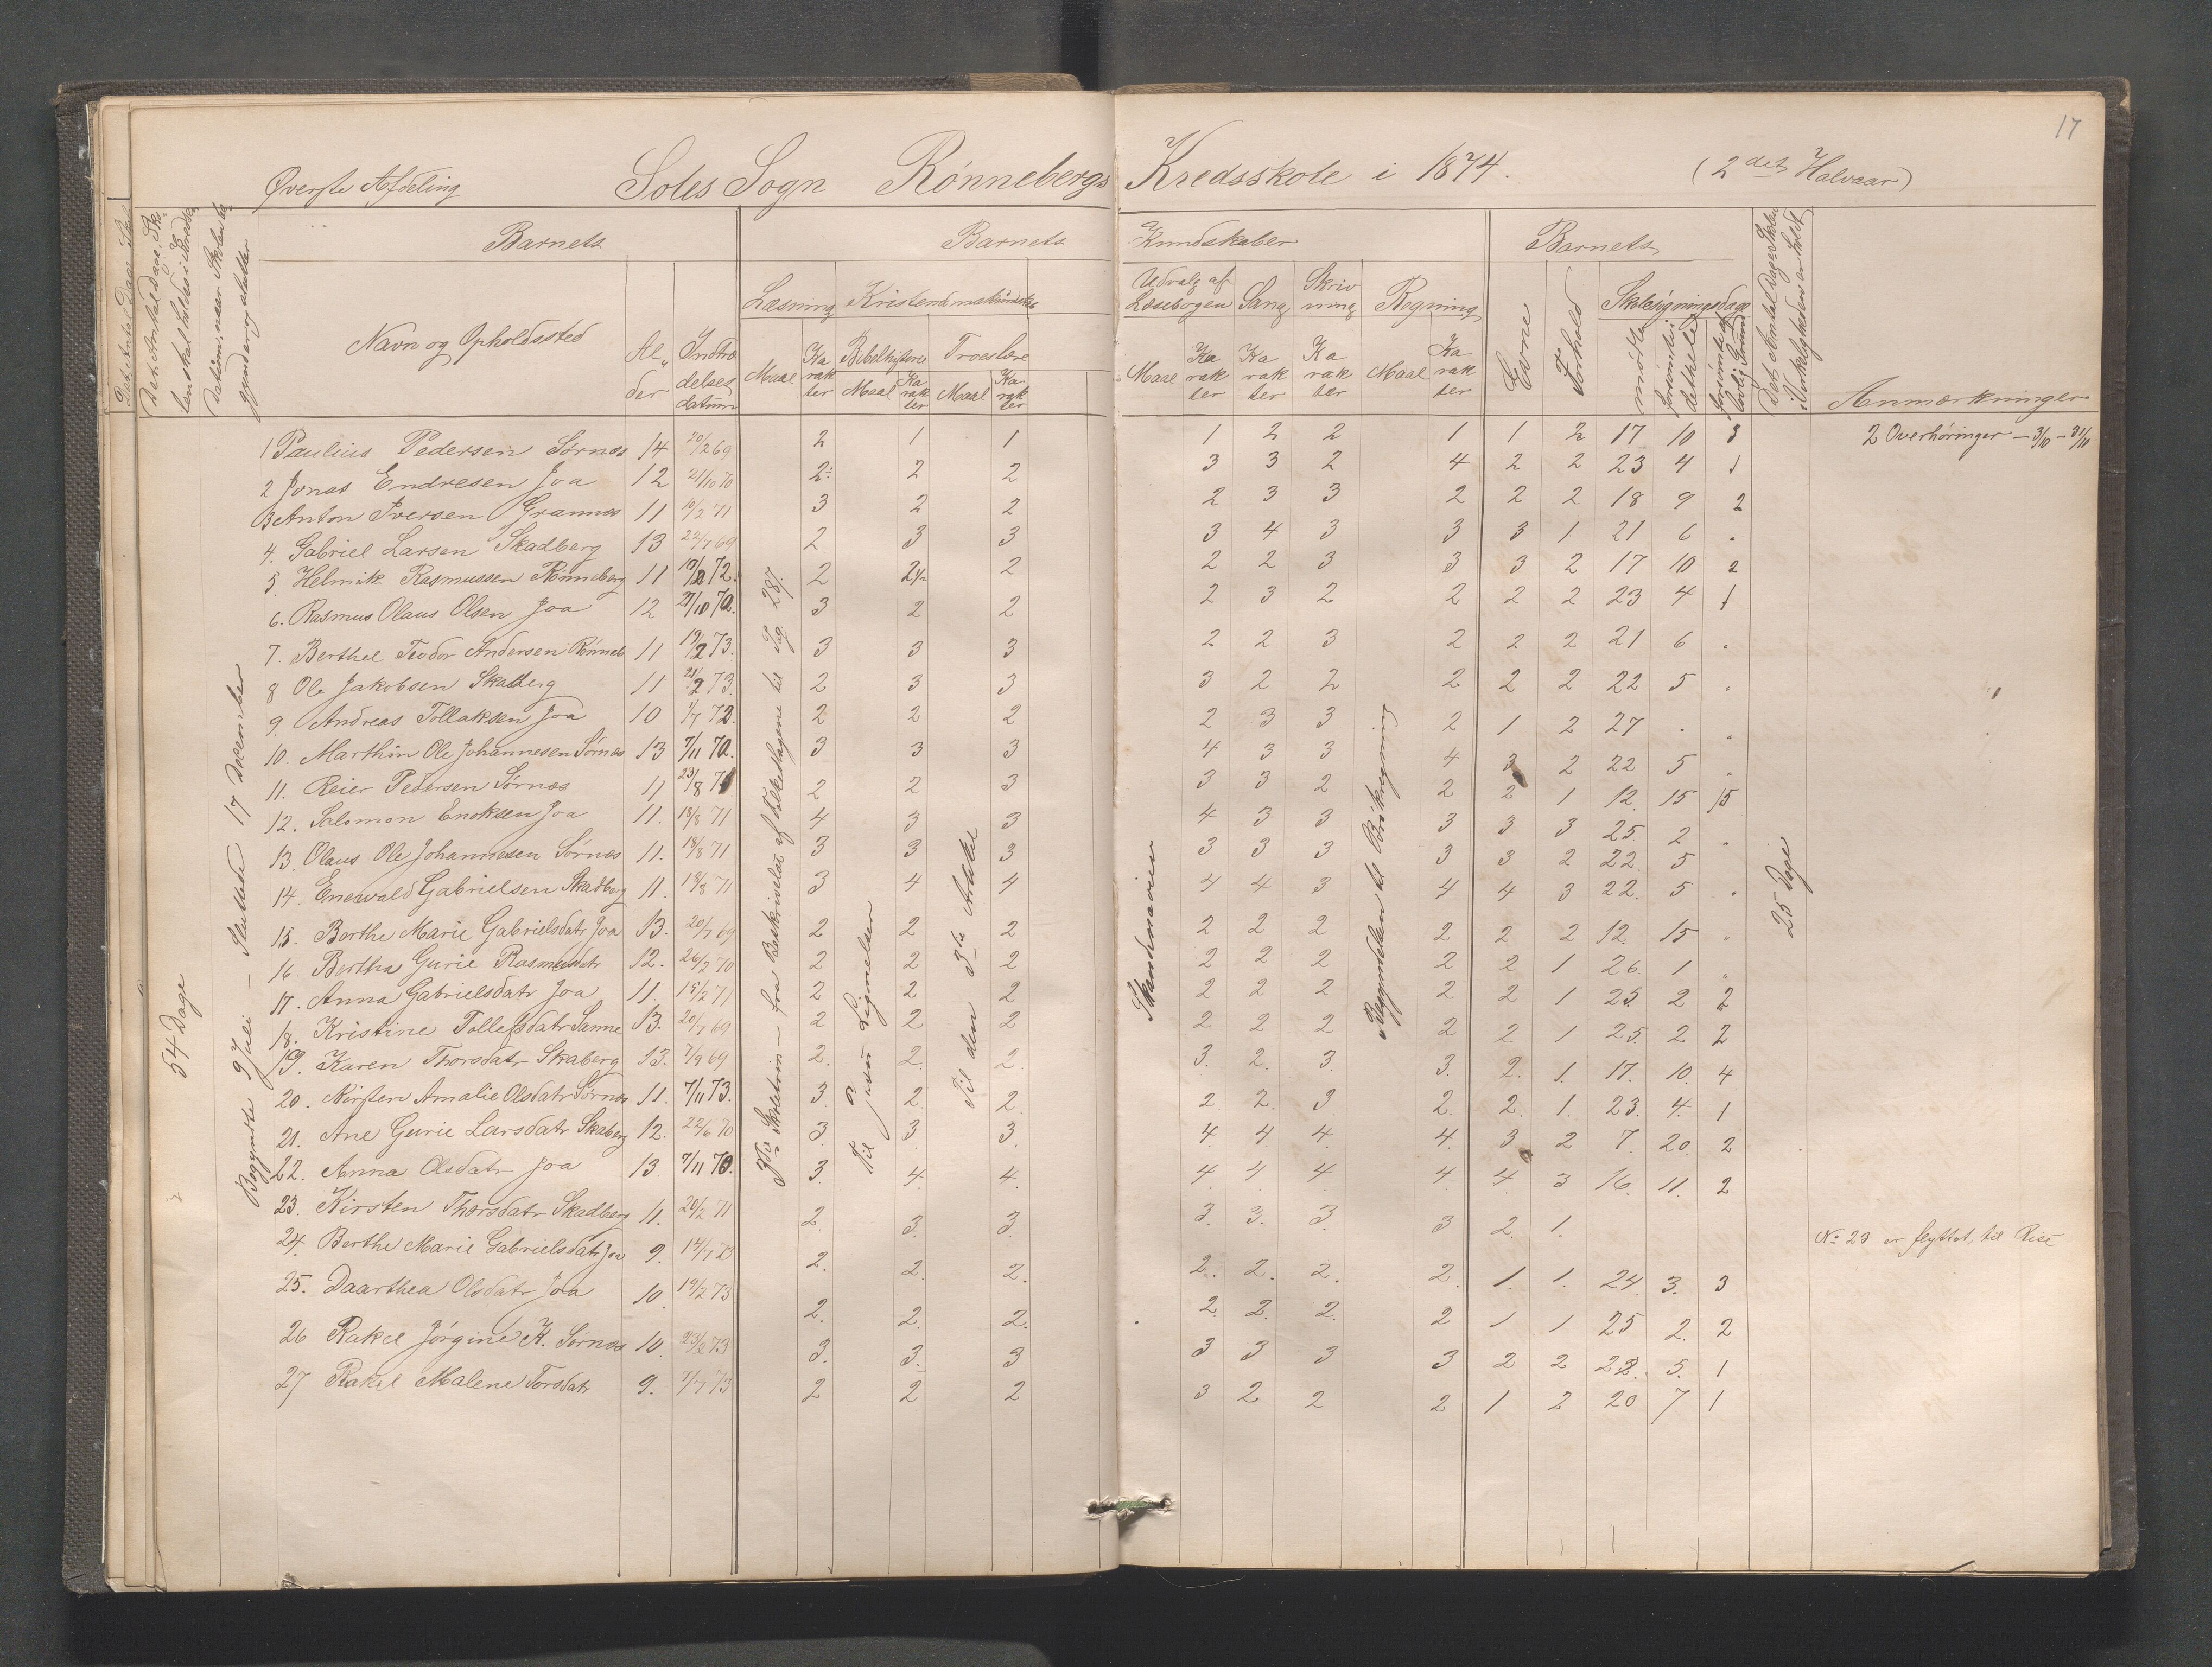 17
Øverste Afdeling Soles Sogn Rønnebergs Kredsskole i 1874. (2det Halvaar)
Det Antal Dage Skolen skal holdes i Kredsen
Datum, naar Skolen begynder og slutter
Barnets
Navn og Opholdssted
Alder
Indtrædelsesdatum
Barnets Kundskaber
Læsning
Maal
Karakter
Kristendomskundskab
Bibelhistorie
Maal
Karakter
Troeslære
Maal
Karakter
Udvalg af Læsebogen
Maal
Karakter
Sang
Karakter
Skrivning
Karakter
Regning
Maal
Karakter
Barnets
Evne
Forhold
Skolesøgningsdage
mødte
forsømte i det hele
forsømte af lovlig Grund
Det Antal Dage Skolen i Virkeligheden er holdt
Anmærkninger
54 Dage
Begyndte 9 Juli – Sluttede 17 December
fra Beskrivelse af Folkeslagene til Pag 287.
Til Jesu Lignelser
Til den 3die Artikel
Skandinavien
Begyndelsen til Brøkregning
25 Dage
1 Paulius Pedersen Sørnes 14 20/2 69 2 1 1 1 2 2 1 1 2 17 10 3 2 Overhøringer – 3/10 – 31/10
2 Jonas Endresen Joa 12 21/10 70 2 2 2 3 3 2 4 2 2 23 4 1
3 Anton Iversen Grannes 11 10/2 71 3 2 2 2 3 3 2 2 2 18 9 2
4. Gabriel Larsen Skadberg 13 22/7 69 2 3 3 3 4 3 3 3 1 21 6 .
5 Helmik Rasmussen Rønneberg 11 72. 2 2 2 2 2 3 3 3 2 17 10 2
6. Rasmus Olaus Olsen Joa 12 21/10 70. 3 2 2 2 3 2 2 2 2 23 4 1
7. Berthel Teodor Andersen Rønneb 11 19/2 73. 3 3 3 2 2 3 2 2 2 21 6 .
8 Ole Jakobsen Skadberg 11 21/2 73. 2 3 3 3 2 2 2 2 2 22 5 .
9. Andreas Tollaksen Joa 10 1/7 72. 2 2 2 2 3 3 2 1 2 27 . .
10. Marthin Ole Johannesen Sørnes 13 7/11 70. 3 3 3 4 3 3 4 3 2 22 5 .
11. Reier Pedersen Sørnes 11 23/8 71 2 2 3 3 3 2 2 2 1 12. 15 15
12. Salomon Enoksen Joa 11. 18/8 71 4 3 3 4 3 3 3 3 3 25. 2 .
13. Olaus Ole Johannesen Sørnes 11. 18/8 71 3 3 3 3 3 3 3 3 2 22. 5
14. Enevald Gabrielsen Skadberg 11. 18/8 71 3 4 4 4 4 3 4 4 3 22. 5 .
15. Berthe Marie Gabrielsdatr Joa 13. 20/7 69 2 2 2 2 2 2 2 2 2 12. 15 .
16. Bertha Gurie Rasmusdatr 12. 26/2 70 2 2 2 2 2 2 2 2 1 26. 1 .
17. Anna Gabrielsdatr Joa 11. 15/2 71 2 2 2 2 2 2 2 2 1 25. 2 2
18. Kristine Tollefsdatr Sanne 13. 20/7 69 2 2 2 2 2 2 2 2 1 25. 2 2
19. Karen Thorsdatr Skaberg 13. 7/9 69 2. 2. 2. 3. 2. 3. 3. 2. 1. 17. 10. 4
20. Kirsten Amalie Olsdatr Sørnes 11. 7/11 73. 3. 2. 2. 2. 2. 3. 2. 2. 1. 23. 4. 1
21. Ane Gurie Larsdatr Skaberg 12. 22/6 70 3. 3 3. 4. 4. 4. 4. 3. 2 7. 20. 2
22. Anna Olsdatr Joa 13. 7/11 70. 3. 4. 4. 4. 4 4 4 4. 3 16. 11. 2
23. Kirsten Thorsdatr Skadberg 11. 20/2 71 2. 3. 3. 3. 3. 3. 3 2. 1. No 23 er flyttet til Rise
24. Berthe Marie Gabrielsdatr Joa 9. 14/7 73 2. 2. 2. 2. 2. 2. 2. 1. 1. 24. 3. 3
25. Daarthea Olsdatr Joa 10. 19/2 73 2. 2. 2. 2. 2. 2. 2 1 1 25 2. 2
26 Rakel Jørgine K. Sørnes 10. 23/2 73 3. 3. 3 3 3 3 3 2 2 22. 5. 1
27 Rakel Malene Torsdatr 9. 7/7 73 2 2 2 3 2 2 2 1 2 20 7. 1